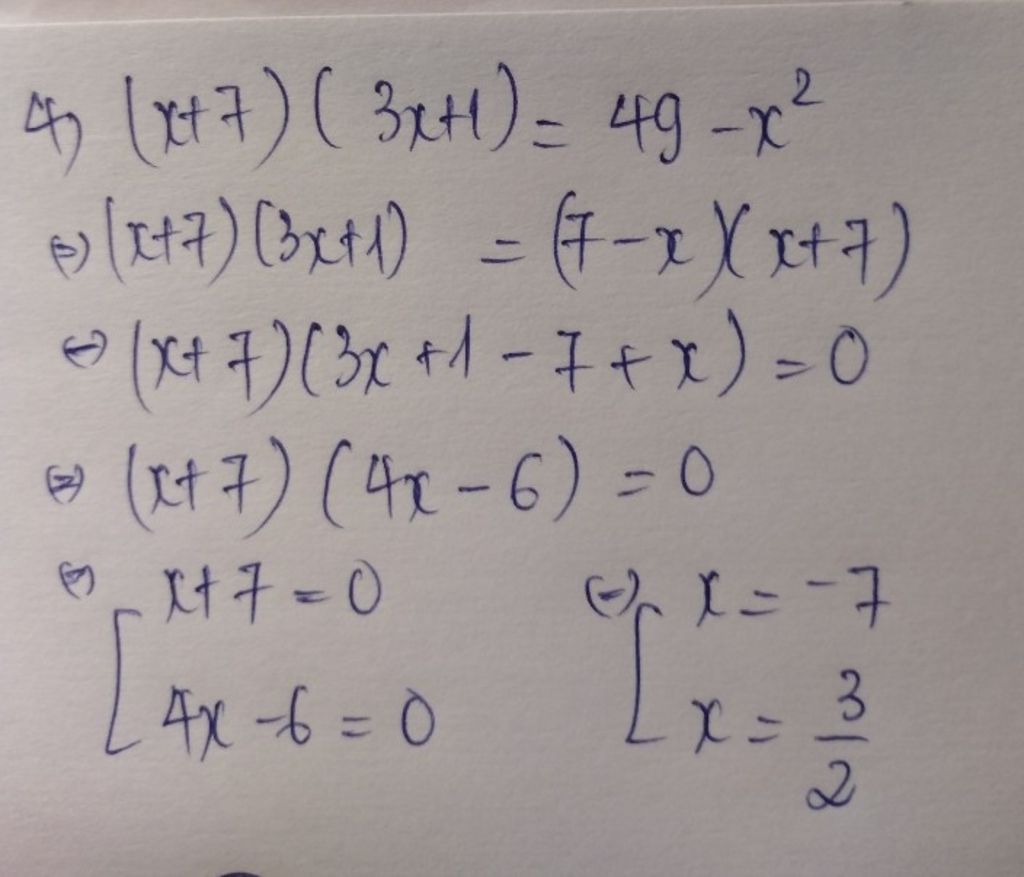 4, (x+7)(3x+1) = 49 - x²
⇔ (x+7)(3x+1) = (7-x)(x+7)
⇔ (x+7)(3x+1-7+x) = 0
⇔ (x+7)(4x-6) = 0
⇔ [ x+7 = 0 ⇔ [ x = -7
4x-6 = 0 x = 3/2